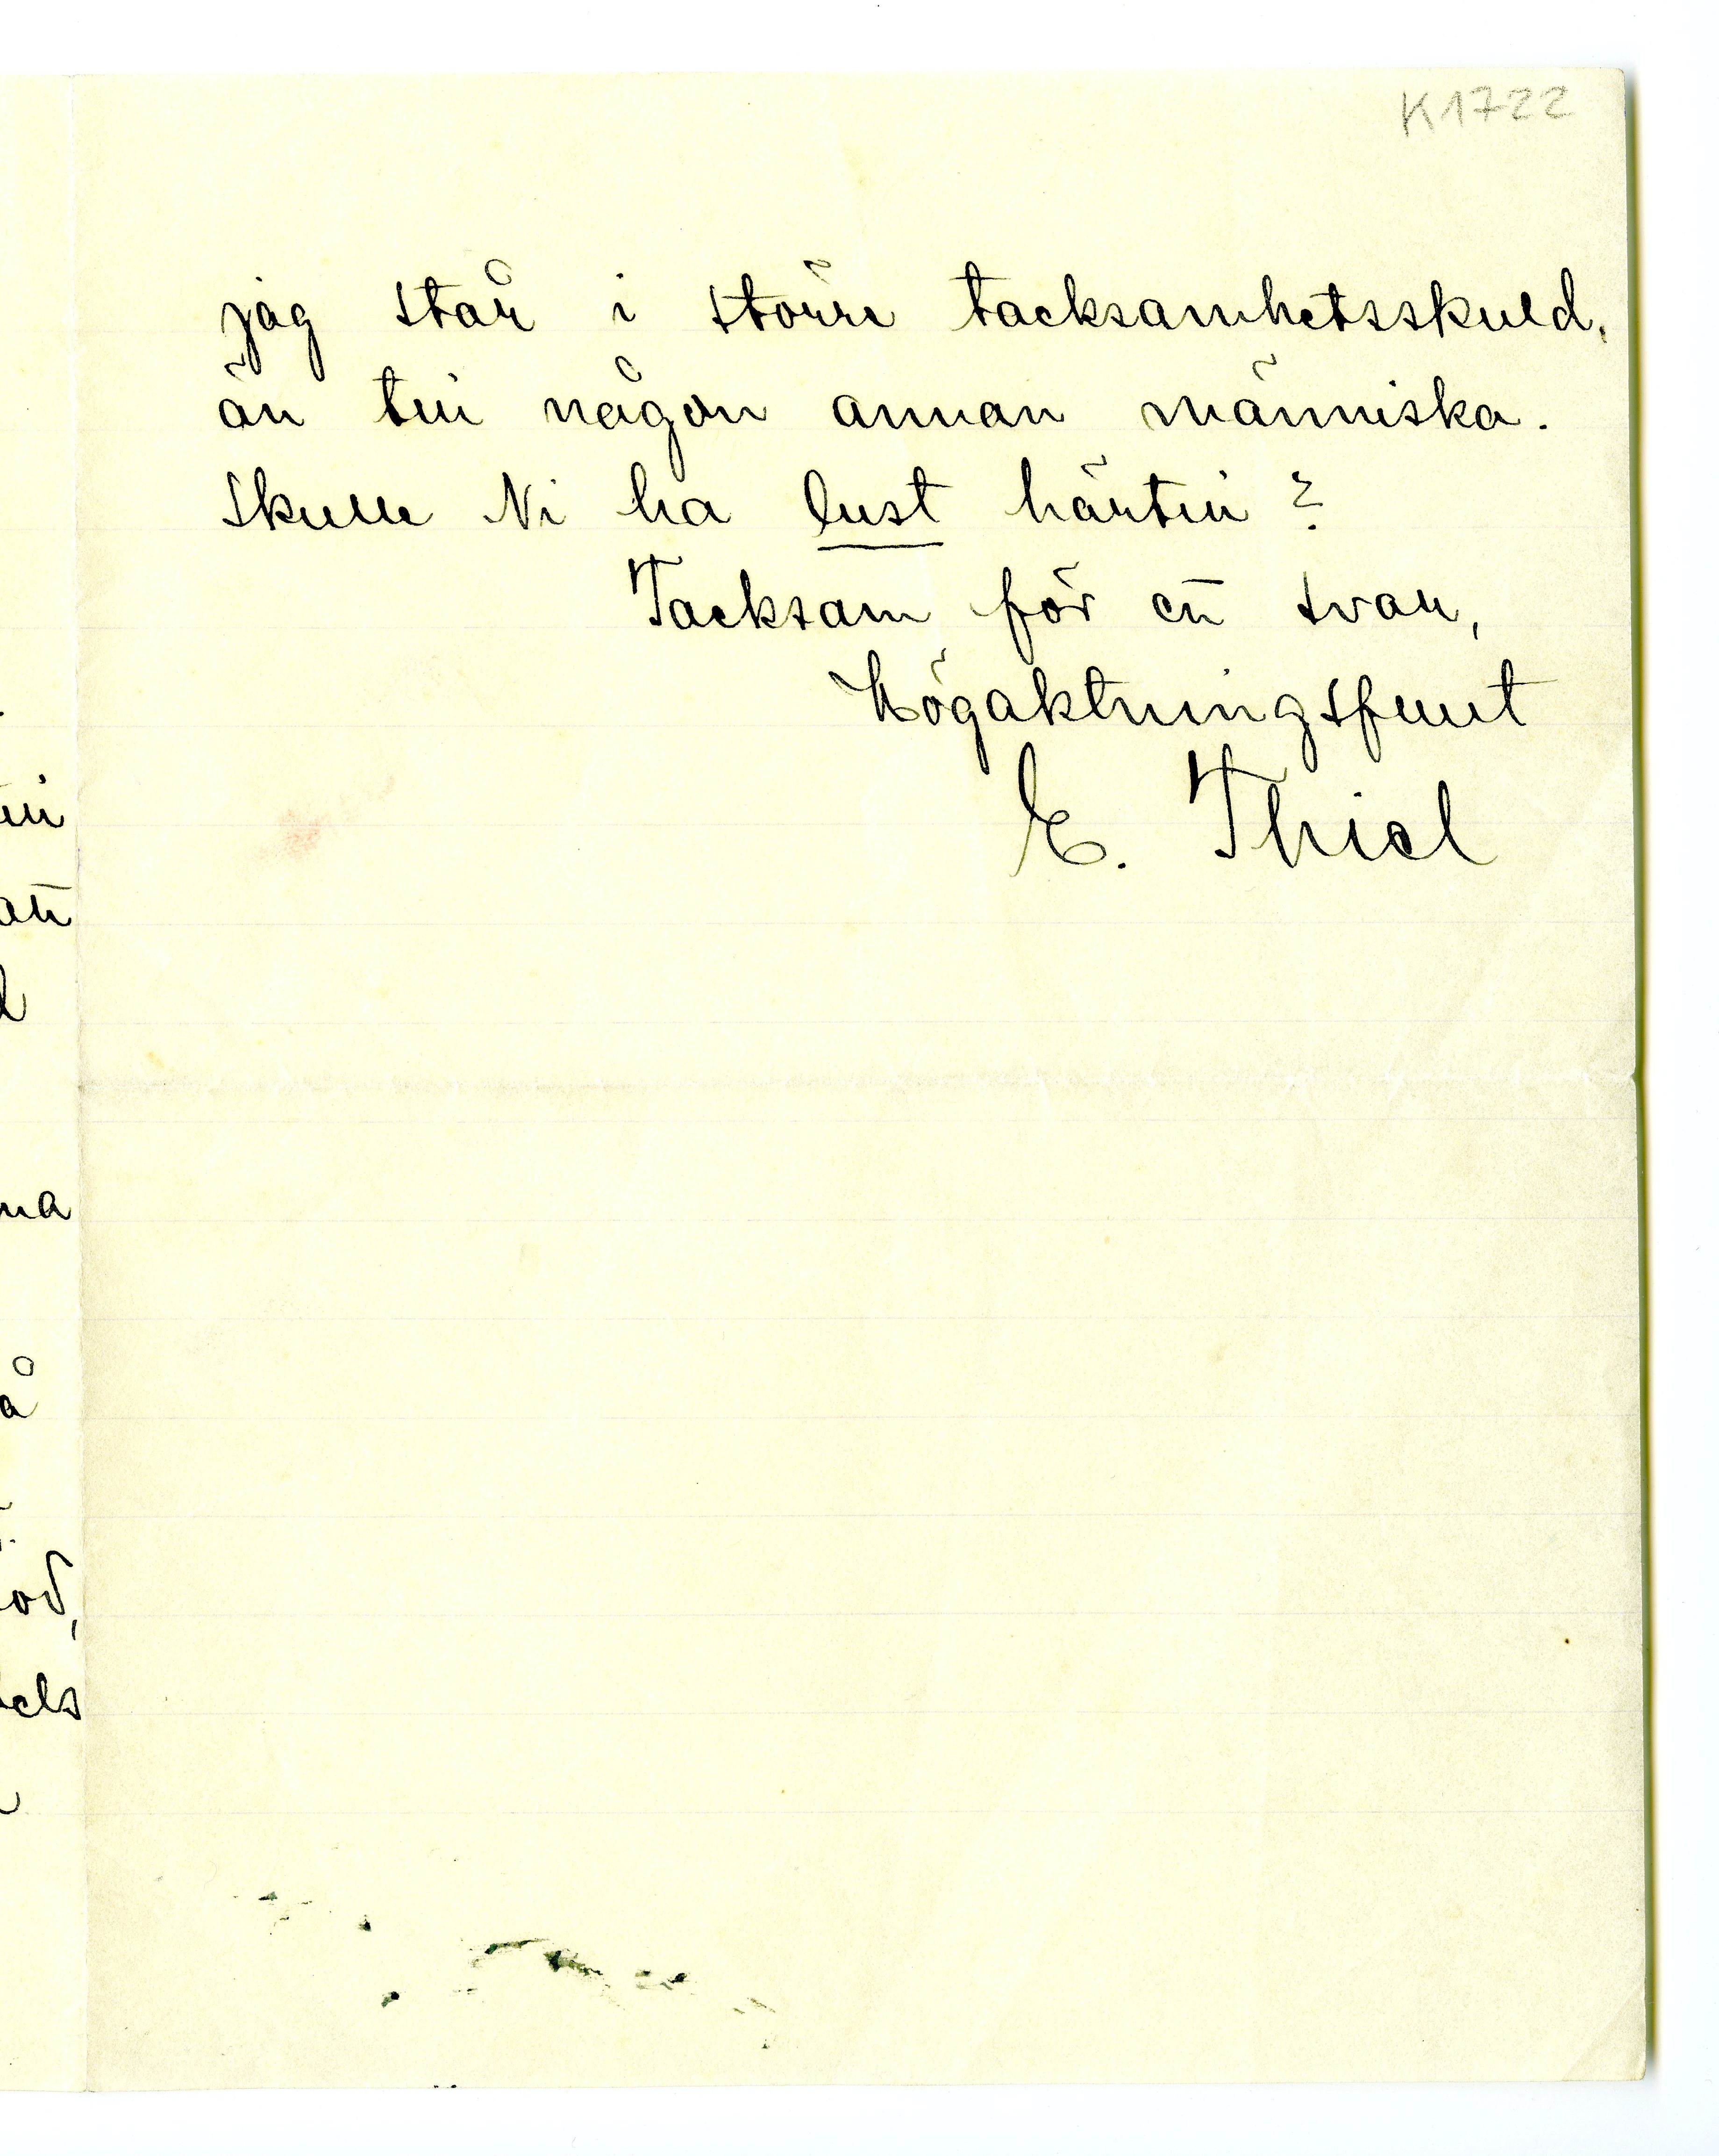 K1722
jag står i större tacksamhetsskuld,
än till någon annan människa.
Skulle Ni ha lust härtill?
Tacksam för ett svar,
Högaktningsfullt
E. Thiel
ma
å
els